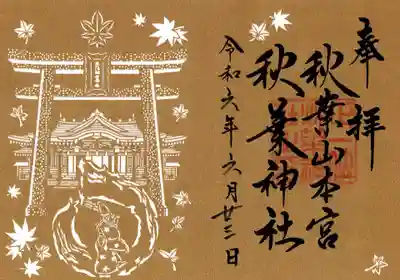 奉拝
秋葉山本宮
秋葉神社
令和六年六月廿三日